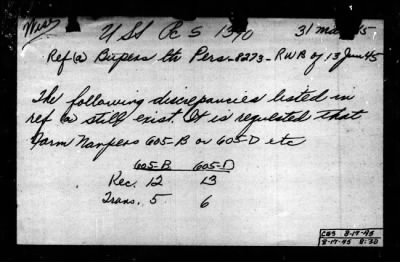 USS PC S 1390 31 Mar 45
Ref (a) Bupers ltr Pers-8273-RWB of 13 Jan 45
The following discrepancies listed in
ref (a) still exist. It is requested that
Form Navpers 605-B or 605-D etc
605-B 605-D
Rec. 12 13
Trans. 5 6
8-17-45
8-17-45 8:30